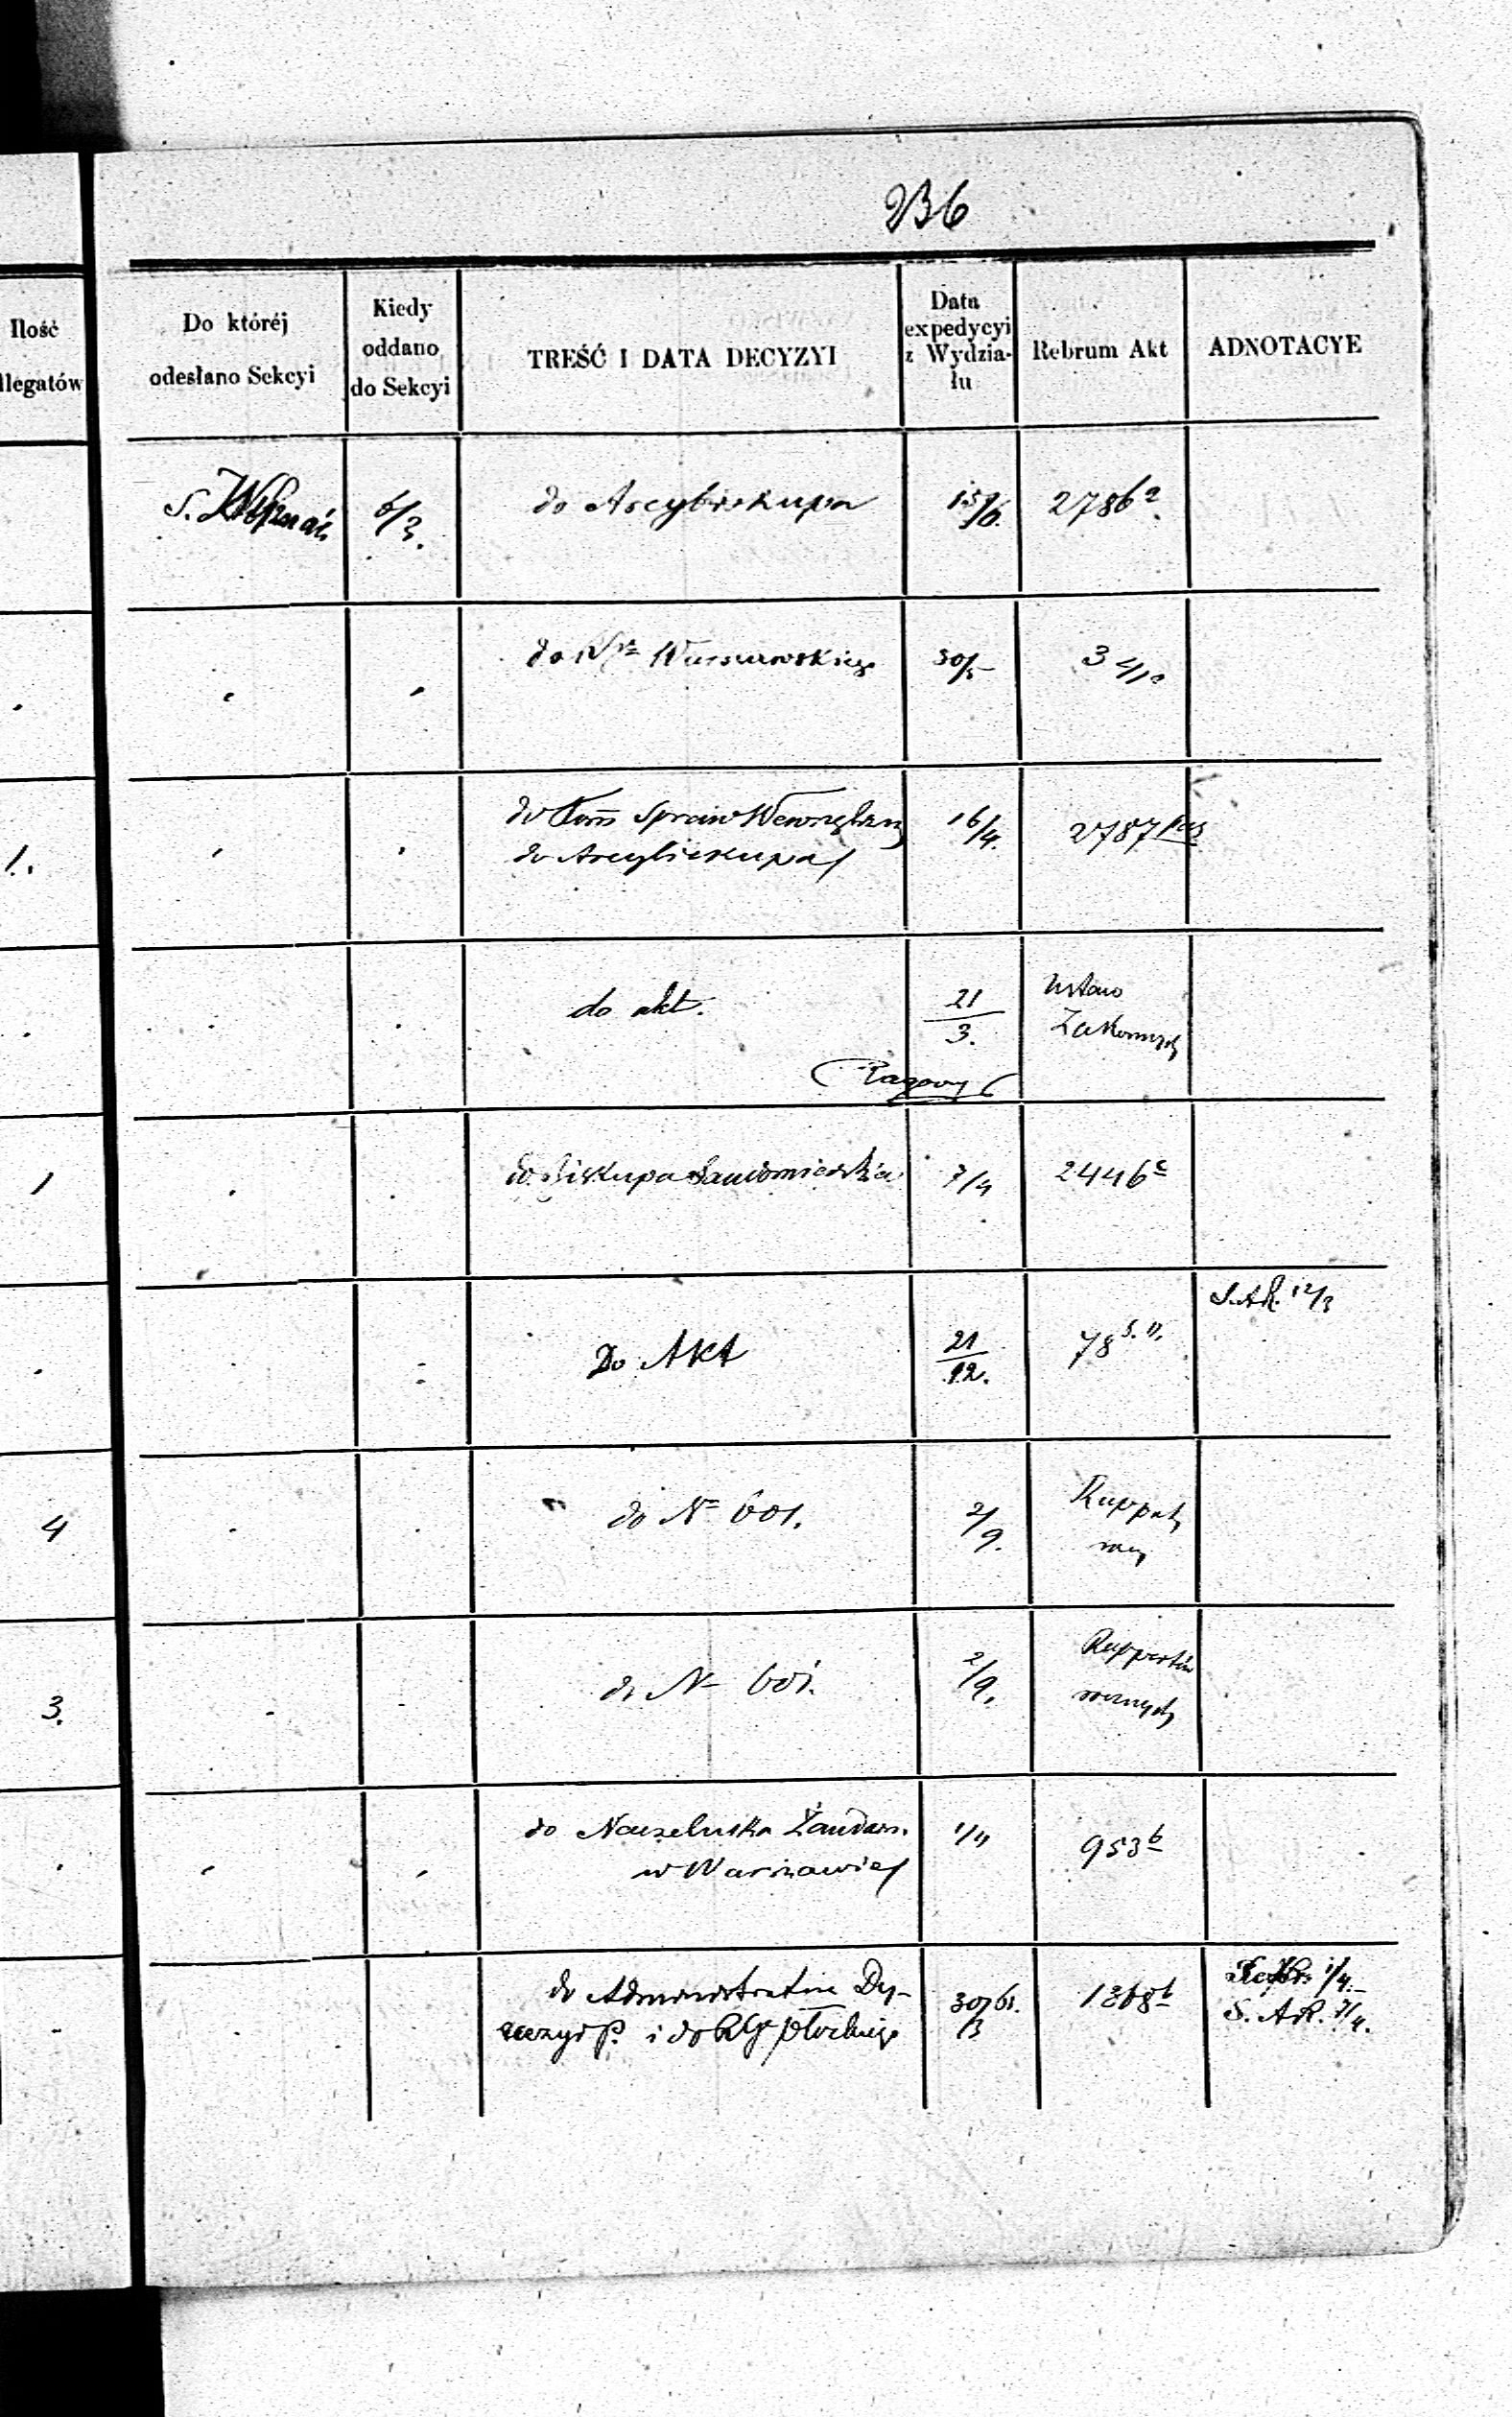 236
Ilość
llegatów
Do któréj
odesłano Sekcyi
Kiedy
oddano
do Sekcyi
TREŚĆ I DATA DECYZYI
Data
expedycyi
z Wydzia-
łu
Rebrum Akt
ADNOTACYE
S. Wyznań
6/3.
do Arcybiskupa
15/6.
2786a
do Warszawskiego
30/3
1.
do Kom Spraw Wewnętrzn
do Arcybiskupa
16/4.
2787
do akt.
21
3.
Ustaw
Zakonnych
1
do Biskupa Sandomierskie
7/4
2446c
Do Akt
21
12.
78
S.AR. 12/3
4
do N= 601.
2/9.
3.
do N- 601.
2/9.
Rapportów
rocznych
do Naczelnika Żandar.
w Warszawie
1/4
953b
do Administratora Dy-
i do Płockiego
30/3
1308b
S. AR. 2/4.